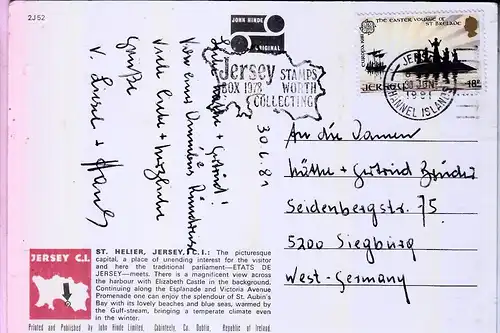 2J52
JOHN HINDE
ORIGINAL
EUROPA 1981
THE EASTER VOYAGE OF
ST BRELADE
JERSEY
18P
JERSEY
30 JUNE
1981
CHANNEL ISLANDS
Jersey STAMPS
BOX 1978 WORTH
COLLECTING
30.6.81
Liebe + Gertrud!
Von einer
Viele liebe + herzliche
Grüße
v. Liesel + Hans
An die Damen
+ Gertrud
Seidenbergstr. 75
5200 Siegburg
West-Germany
JERSEY C.I.
ST. HELIER, JERSEY, C.I.: The picturesque
capital, a place of unending interest for the visitor
and here the traditional parliament—ETATS DE
JERSEY—meets. There is a magnificent view across
the harbour with Elizabeth Castle in the background.
Continuing along the Esplanade and Victoria Avenue
Promenade one can enjoy the splendour of St. Aubin's
Bay with its lovely beaches and blue seas, warmed by
the Gulf-stream, bringing a temperate climate even
in the winter.
Printed and Published by John Hinde Limited, Cabinteely, Co. Dublin, Republic of Ireland.